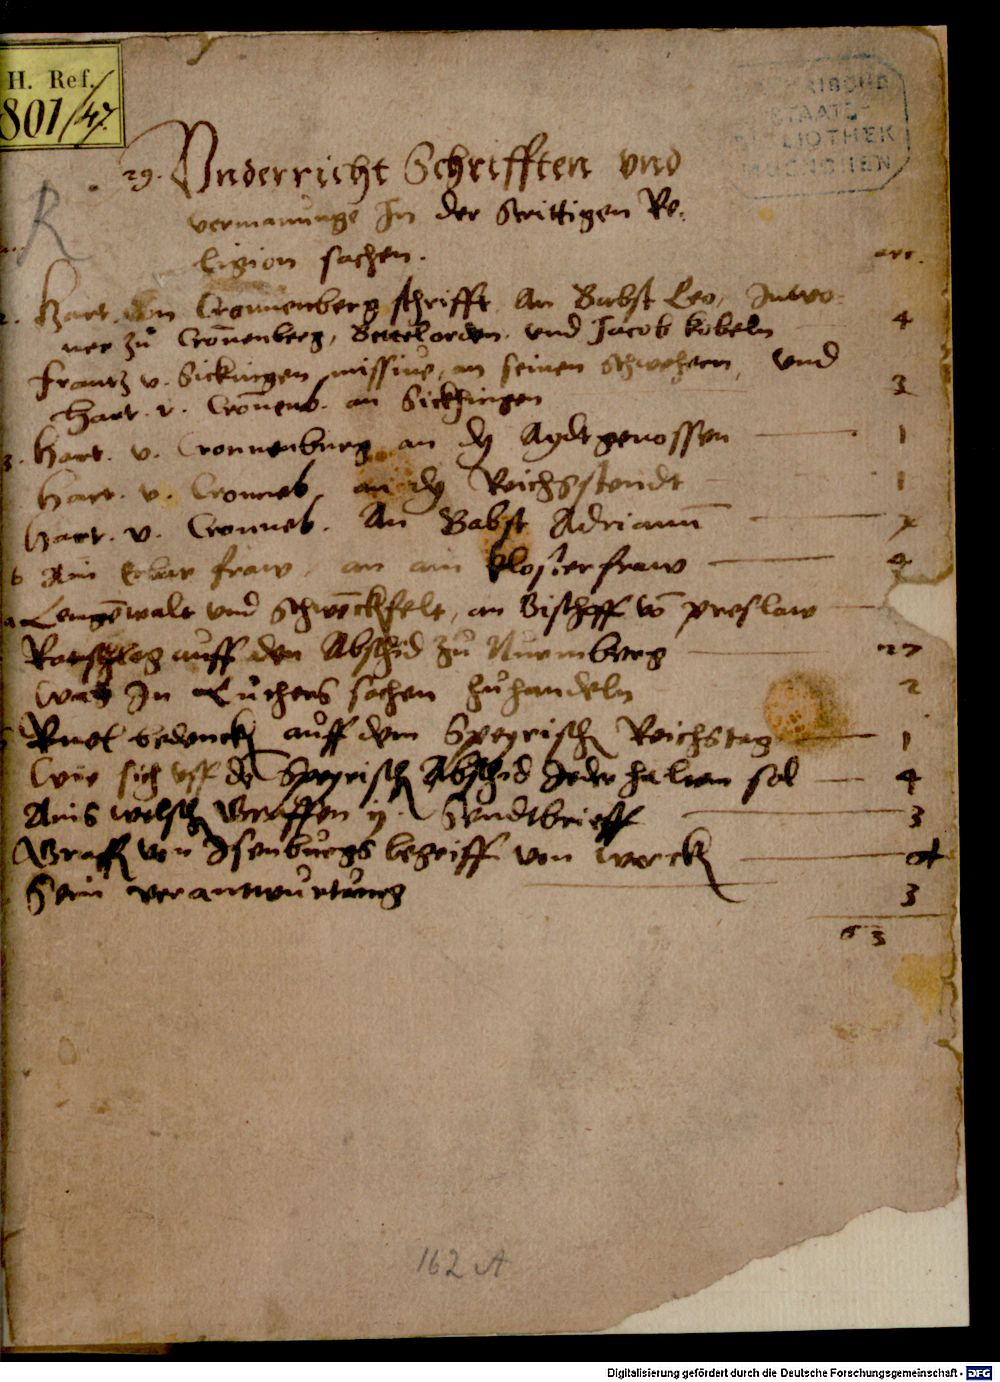 H. Ref.
801/47.
BAYERISCHE
STAATS-
BIBLIOTHEK
MUENCHEN
29. Vnderricht Schrifften vnd
vermanunge In der Strittigen Re-
ligion sachen.
R
Hart. von Cronnenberg schrifft An Babst Leo, Inwo-
ner zů Cronenberg, Bettelorden, vnd Jacob Kobeln 4
Frantz v. Sickingen missive, an seinen Schwehern, vnd
Hart. v. Cronenb. an Sickhingen 3
3. Hart. v. Cronnenburg an dy Aydtgenossen 1
Hart. v. Cronneb. an dy Reichsstendt 1
Hart. v. Cronneb. An Babst Adrianum
Ain Erbar fraw, an ain Klosterfraw 4
Lengenwalt vnd Schwenckfelt, an Bischoff von preslaw
Ratschleg auff den Abschid zů Nurmberg 27
Was In Luthers sachen zuhandeln 2
Rhat bedenck auff dem Speyrisch Reichstag 1
Wie sich vff de Speyrisch Abschid Jeder halten sol 4
Ains welsch Graffen ij. Sendtbrieff 3
Graff von Isenburgs begriff von werck
Sein verantwurtung 3
63
162 A
Digitalisierung gefördert durch die Deutsche Forschungsgemeinschaft - DFG